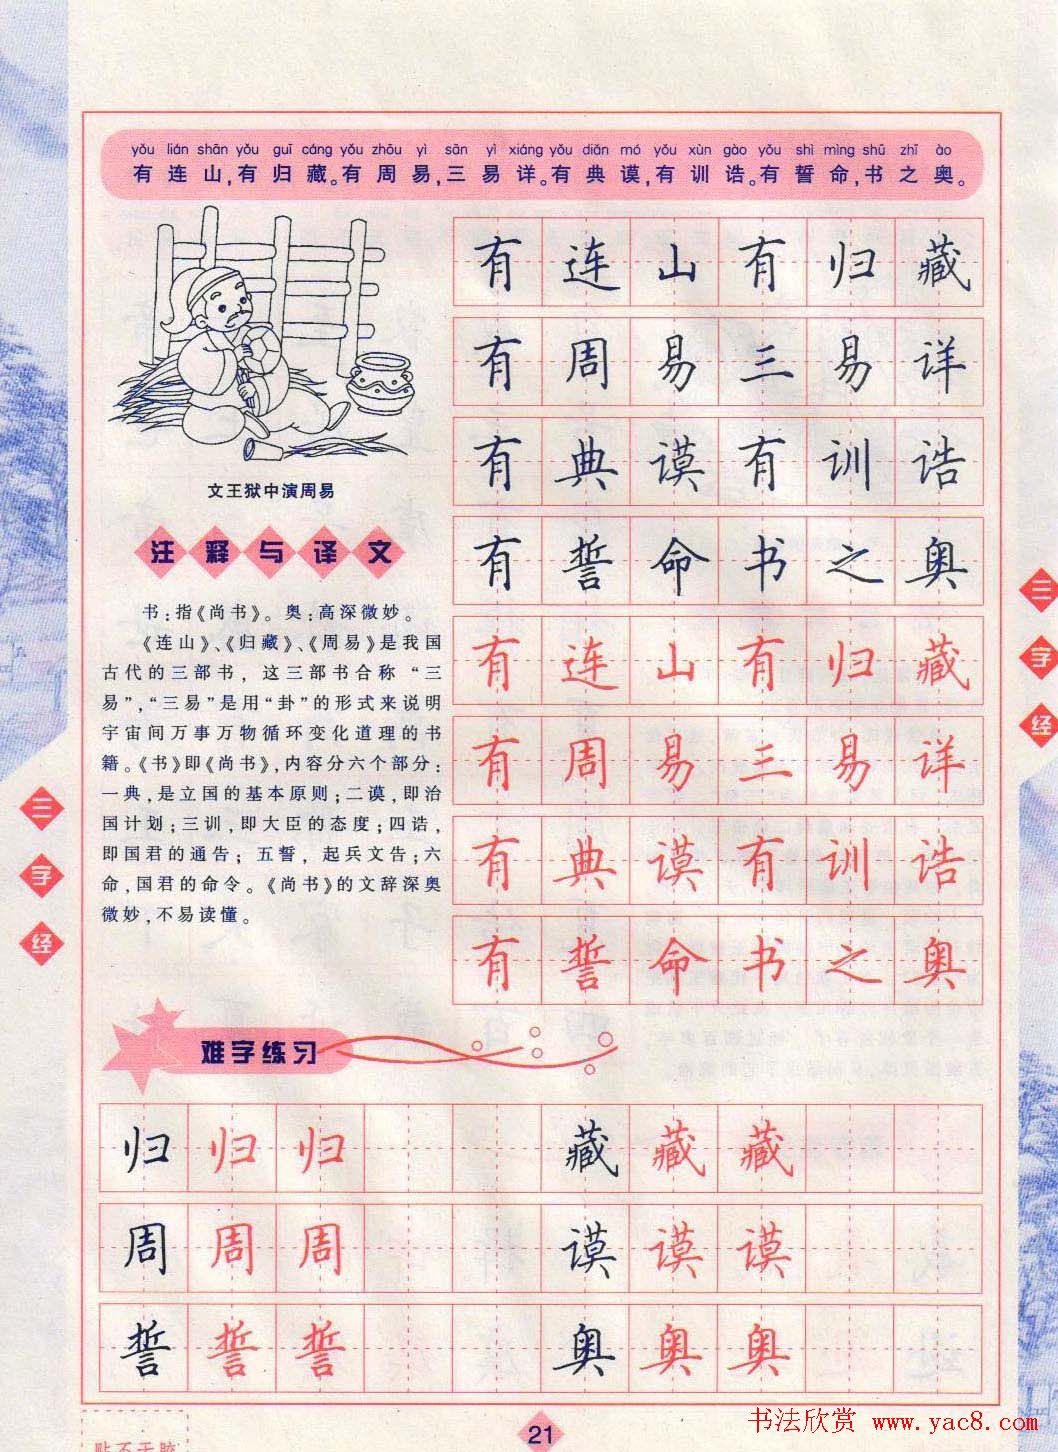 yǒu lián shān yǒu guī cáng yǒu zhōu yì sān yì xiáng yǒu diǎn mó yǒu xùn gào yǒu shì mìng shū zhī ào
有连山,有归藏。有周易,三易详。有典谟,有训诰。有誓命,书之奥。
有连山有归藏
有周易三易详
有典谟有训诰
有誓命书之奥
有连山有归藏
有周易三易详
有典谟有训诰
有誓命书之奥
文王狱中演周易
注释与译文
书:指《尚书》。奥:高深微妙。
《连山》、《归藏》、《周易》是我国
古代的三部书，这三部书合称“三
易”,“三易”是用“卦”的形式来说明
宇宙间万事万物循环变化道理的书
籍。《书》即《尚书》,内容分六个部分:
一典,是立国的基本原则;二谟,即治
国计划;三训,即大臣的态度;四诰,
即国君的通告;五誓，起兵文告;六
命,国君的命令。《尚书》的文辞深奥
微妙,不易读懂。
难字练习
归归归 藏藏藏
周周周 谟谟谟
誓誓誓 奥奥奥
三字经
三字经
21
贴不干胶
书法欣赏 www.yac8.com